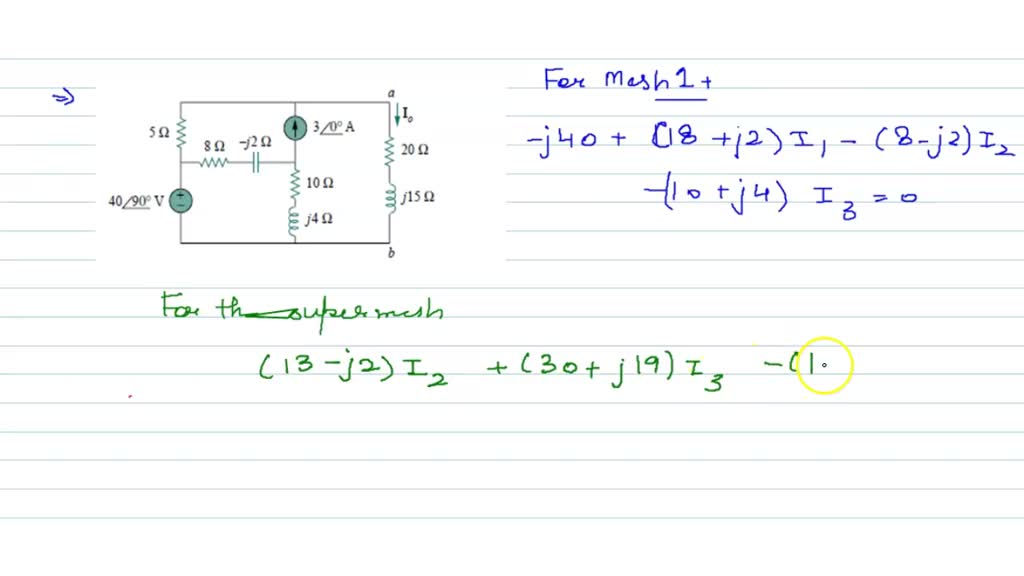 ⇒
a
I₀
5 Ω
3/0° A
8 Ω
-j2 Ω
20 Ω
10 Ω
40/90° V
j15 Ω
j4 Ω
b
For Mesh 1 +
-j40 + (18 + j2) I₁ - (8 - j2) I₂
-(10 + j4) I₃ = 0
For the supermesh
(13 - j2) I₂ + (30 + j19) I₃ - (1